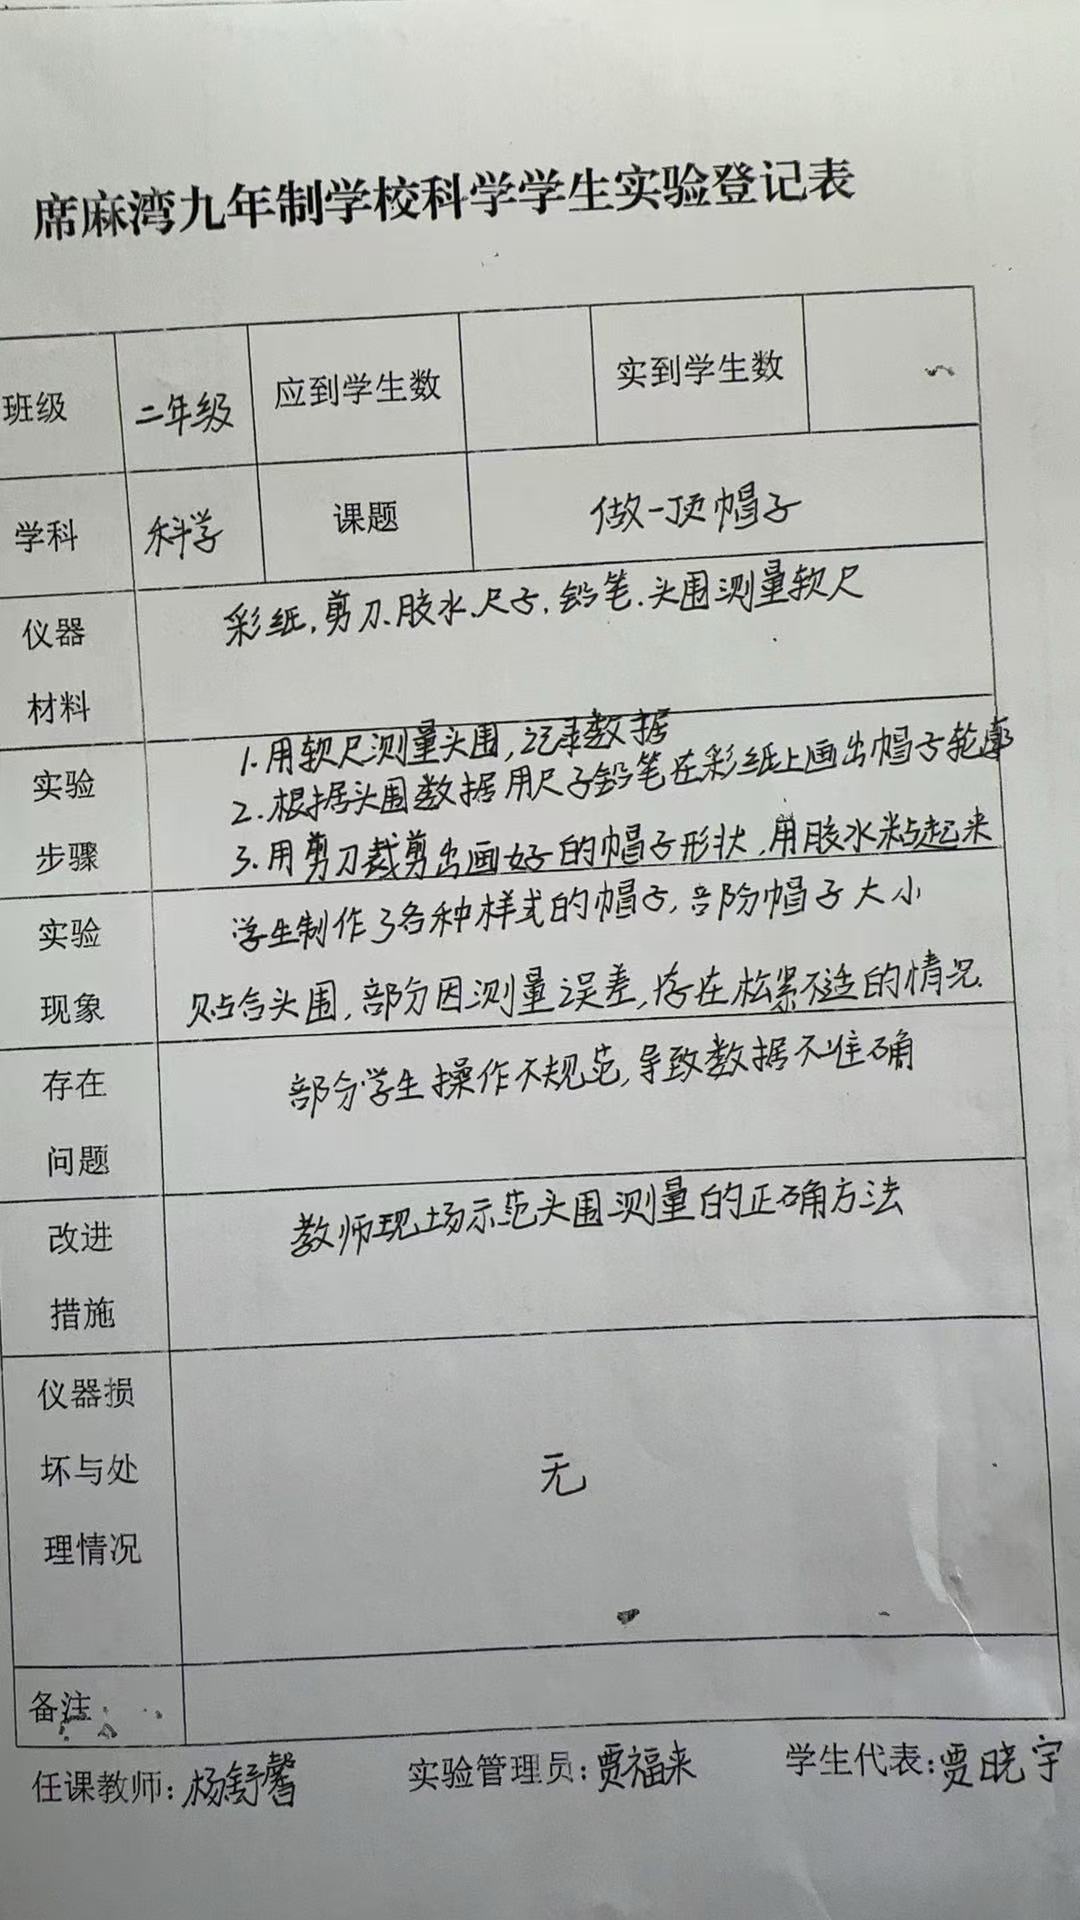 席麻湾九年制学校科学学生实验登记表
班级 二年级 应到学生数 实到学生数
学科 科学 课题 做一顶帽子
仪器材料 彩纸,剪刀.胶水.尺子,铅笔.头围测量软尺
实验步骤 1.用软尺测量头围,记录数据
2.根据头围数据用尺子铅笔在彩纸上画出帽子轮廓
3.用剪刀裁剪出画好的帽子形状,用胶水粘起来
实验现象 学生制作了各种样式的帽子,部份帽子大小
贴合头围,部分因测量误差,存在松紧不适的情况.
存在问题 部分学生操作不规范,导致数据不准确
改进措施 教师现场示范头围测量的正确方法
仪器损坏与处理情况 无
备注
任课教师:杨舒馨 实验管理员:贾福来 学生代表:贾晓宇